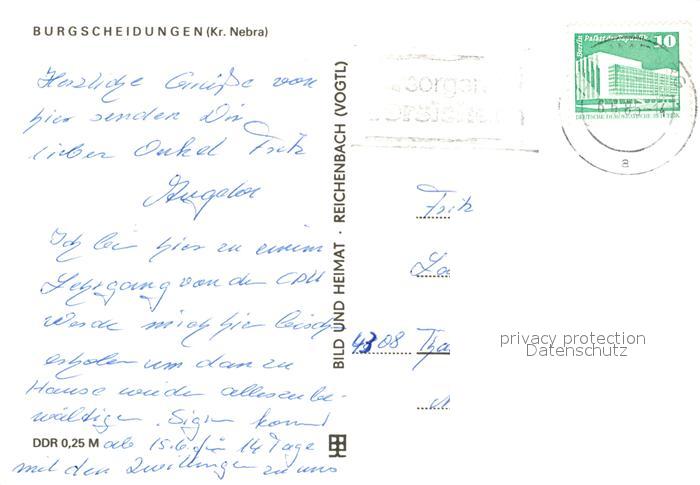 BURGSCHEIDUNGEN (Kr. Nebra)
Herzliche Grüße von
hier senden Dir
lieber Onkel Fritz
Angelor
Ich bin hier zu einem
Lehrgang von der CDU
Werde mich hier
erholen um dann zu
Hause wieder alles zu be-
wältigen. Sigrun kommt
DDR 0,25 M
ab 15.6. für 14 Tage
mit den Zwillingen zu uns
BILD UND HEIMAT · REICHENBACH (VOGTL)
Berlin Palast der Republik 10
DEUTSCHE DEMOKRATISCHE REPUBLIK
a
Fritz
La
4308 Tha
privacy protection
Datenschutz